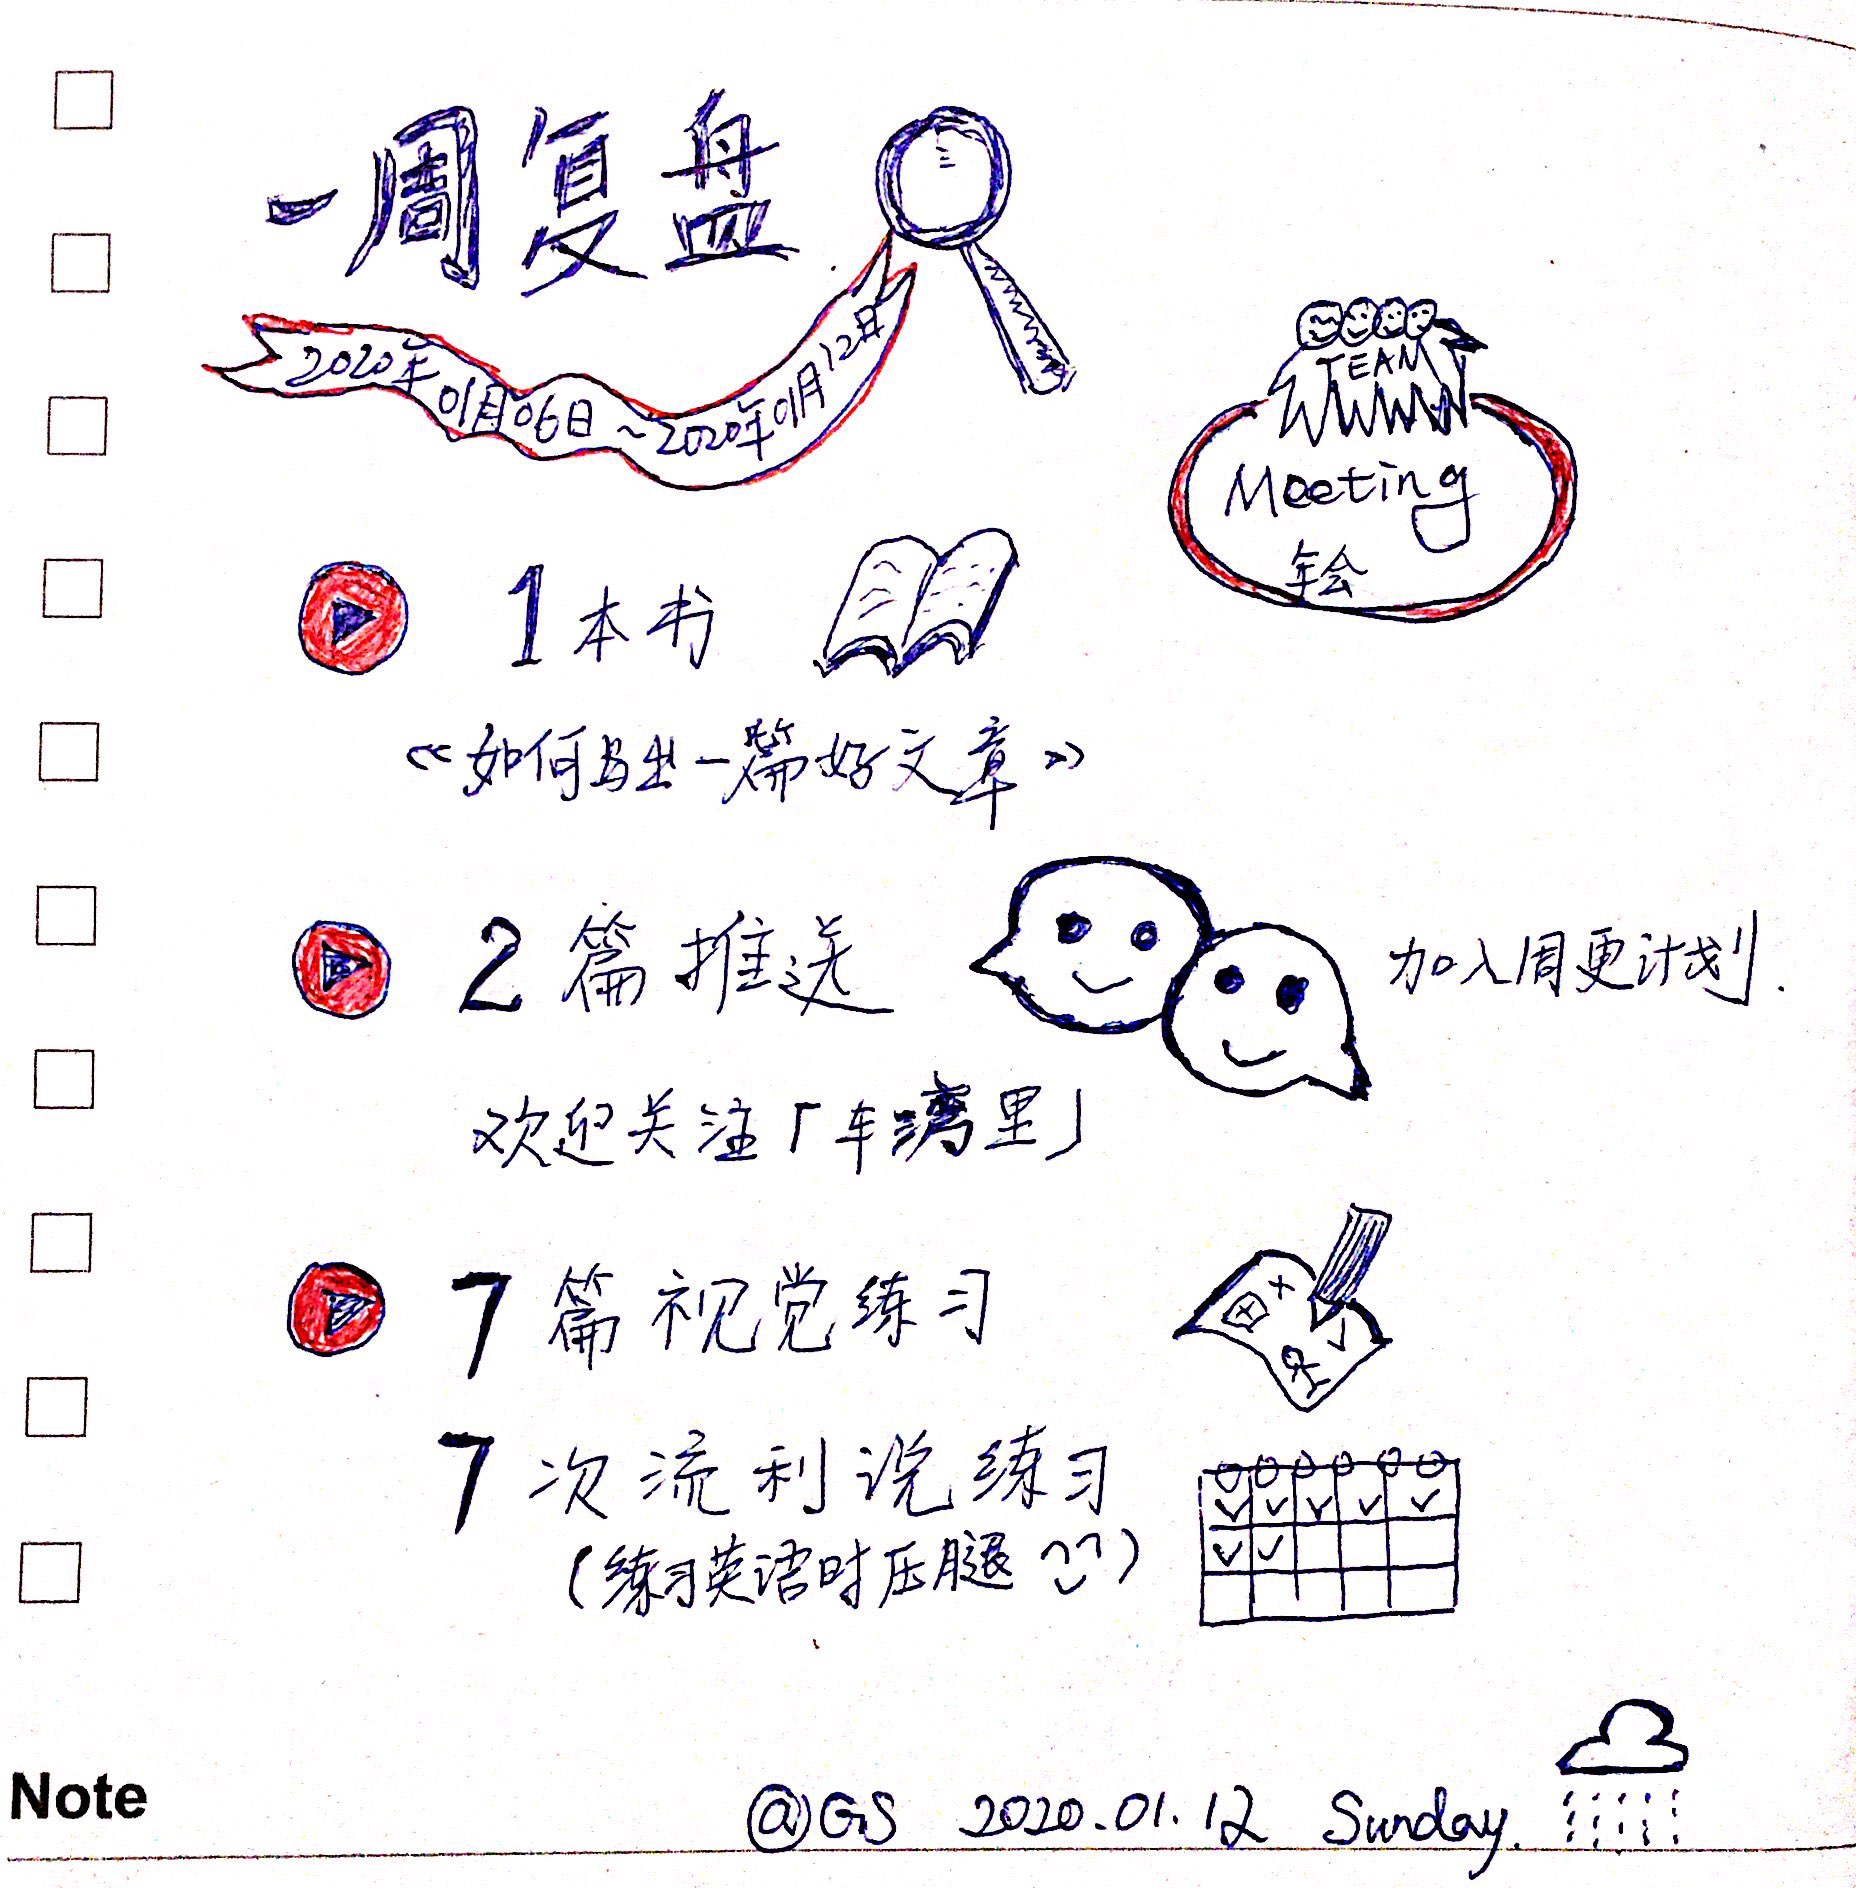 一周复盘
2020年01月06日~2020年01月12日
TEAM
Meeting
年会
1本书
《如何写出一篇好文章》
2篇推送
加入周更计划.
欢迎关注「车湾里」
7篇视觉练习
7次流利说练习
(练习英语时压腿)
Note
@GS 2020.01.12 Sunday.